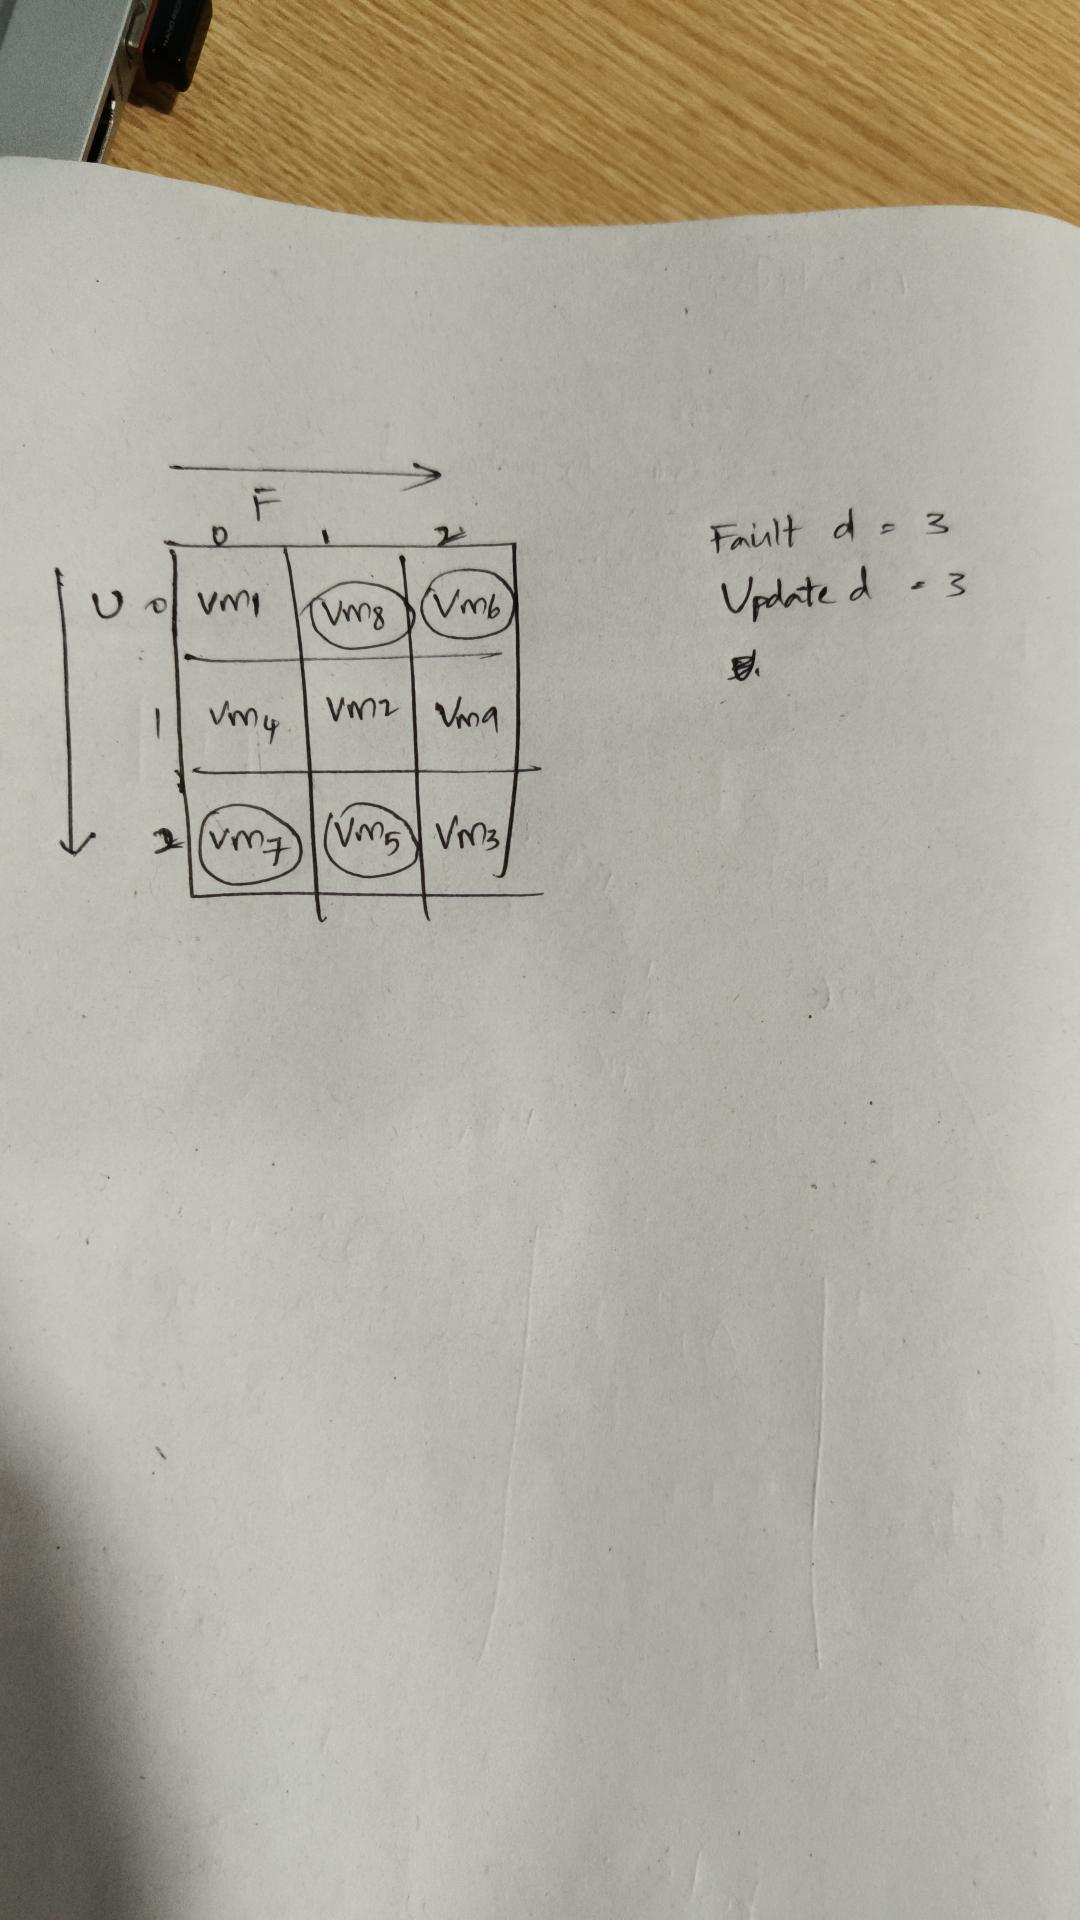 F
0 1 2
U 0 Vm1 Vm8 Vm6
1 Vm4 Vm2 Vm9
2 Vm7 Vm5 Vm3
Fault d = 3
Update d = 3